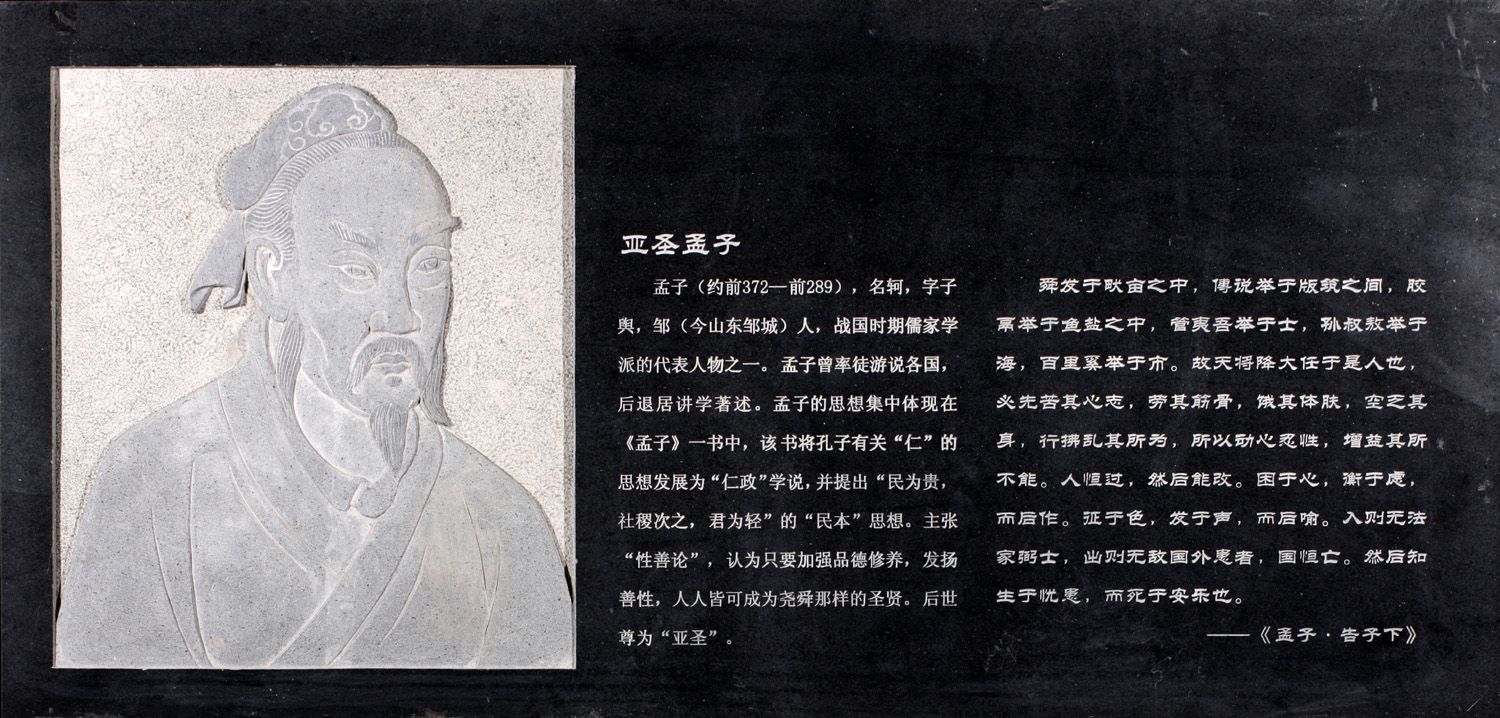 亚圣孟子
孟子（约前372—前289），名轲，字子
舆，邹（今山东邹城）人，战国时期儒家学
派的代表人物之一。孟子曾率徒游说各国，
后退居讲学著述。孟子的思想集中体现在
《孟子》一书中，该书将孔子有关“仁”的
思想发展为“仁政”学说，并提出“民为贵，
社稷次之，君为轻”的“民本”思想。主张
“性善论”，认为只要加强品德修养，发扬
善性，人人皆可成为尧舜那样的圣贤。后世
尊为“亚圣”。
舜发于畎亩之中，傅说举于版筑之间，胶
鬲举于鱼盐之中，管夷吾举于士，孙叔敖举于
海，百里奚举于市。故天将降大任于是人也，
必先苦其心志，劳其筋骨，饿其体肤，空乏其
身，行拂乱其所为，所以动心忍性，增益其所
不能。人恒过，然后能改。困于心，衡于虑，
而后作。征于色，发于声，而后喻。入则无法
家弼士，出则无敌国外患者，国恒亡。然后知
生于忧患，而死于安乐也。
——《孟子·告子下》